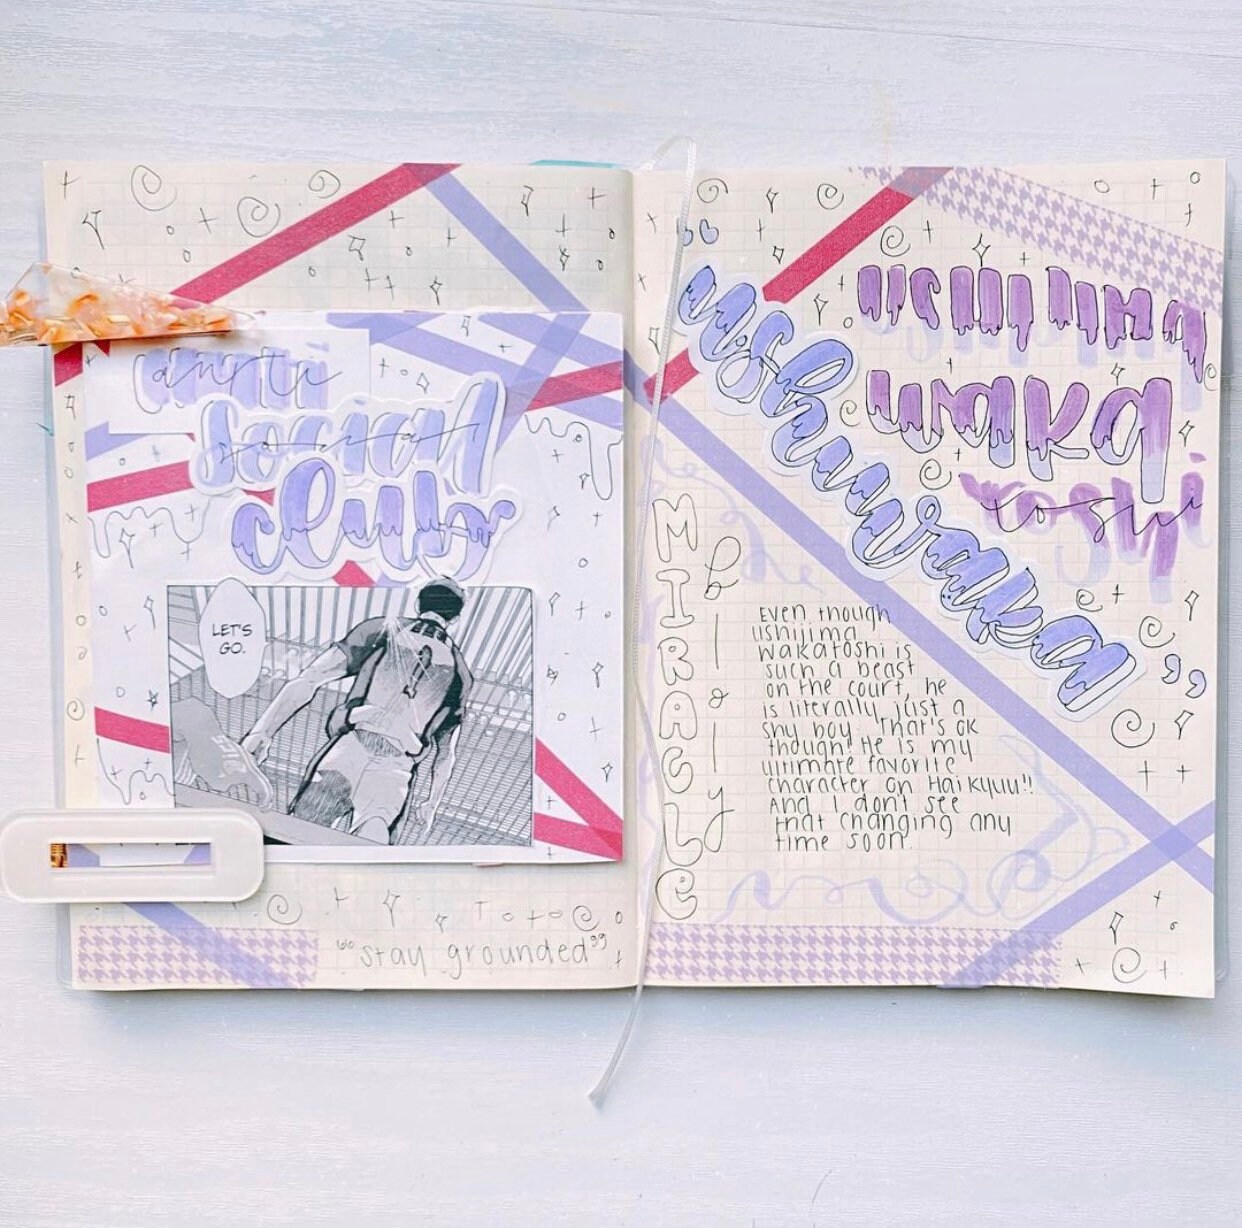 anti
social
club
LET'S
GO.
"stay grounded"
"ushiwaka"
USHIJIMA
waka
toshi
MIRACLE
boy
Even though
ushijima
wakatoshi is
such a beast
on the court, he
is literally just a
shy boy. That's ok
though! He is my
ultimate favorite
character on Haikyuu!!
And I don't see
that changing any
time soon.